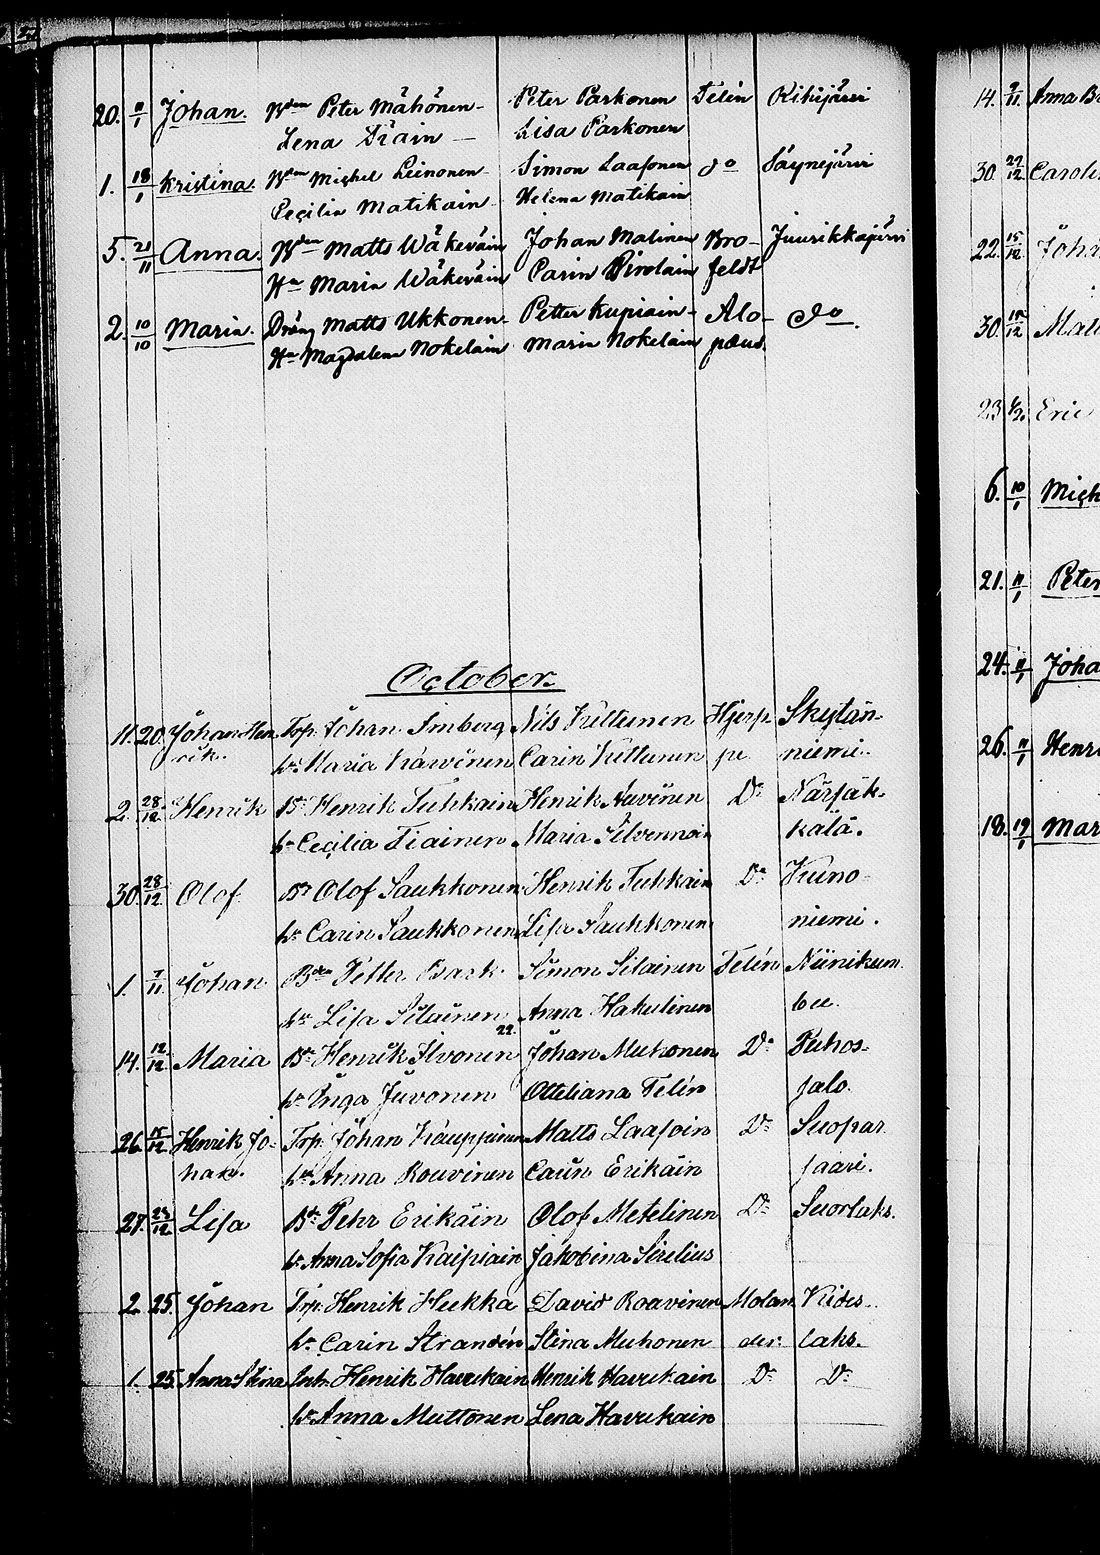 20. 11/1 Johan. Bdm Peter Mähönen Peter Parkonen Telén Kikijärvi
Lena Tiain Lisa Parkonen
1. 18/1 Kristina. Bdm Michel Leinonen Simon Laasonen do Säynejärvi
Cecilia Matikain Helena Matikain
5. 21/11 Anna. Bdm Matts Wäkeväin Johan Malinen Bro- Juurikkajärvi
Hu Maria Wäkeväin Carin Pirolain feldt
2. 10/10 Maria. Dräng Matts Ukkonen Petter Kupiain Alo- do.
Hu Magdalena Nokelain Maria Nokelain pæus.
October.
11. 20. Johan Hen Torp. Johan Imberg Nils Kuttunen Hjerp Skytän-
rik. hu Maria Karvinen Carin Kuttunen pe niemi.
2. 28/12 Henrik Bd Henrik Tuhkain Henrik Auvinen Do Närsäk-
hu Cecilia Tiainen Maria Silvennoin kälä.
30. 28/12 Olof Bd Olof Saukkonen Henrik Tuhkain Do Kuno-
hu Carin Saukkonen Lisa Saukkonen niemi.
1. 7/11 Johan Bdm Petter Bark Simon Silainen Telén Niinikum
hu Lisa Silainen Anna Hakulinen bu.
22.
14. 12/12 Maria Bd Henrik Ilvonen Johan Muhonen Do Puhos-
hu Inga Juvonen Otteliana Telén salo.
26. 15/12 Henrik Jo- Torp. Johan Kauppinen Matts Laasoin Do Suopar
han. hu Anna Rouvinen Carin Erikäin saari.
27. 23/12 Lisa Bd Pehr Erikäin Olof Metelinen Do Suorlaks.
hu Anna Sofia Kaipiain Jakobina Sirelius
2. 25. Johan Torp. Henrik Hukka David Rouvinen Molan Kides-
hu Carin Strandén Stina Muhonen der. laks.
1. 25. Anna Stina Inh. Henrik Havukain Henrik Havukain Do Do
hu Anna Muttonen Lena Havukain
14. 9/11
30. 27/12
22. 15/12
30.
23
6. 10/1
21. 11/1 Peter
24. 11/1
26. 11/1
18. 19/1